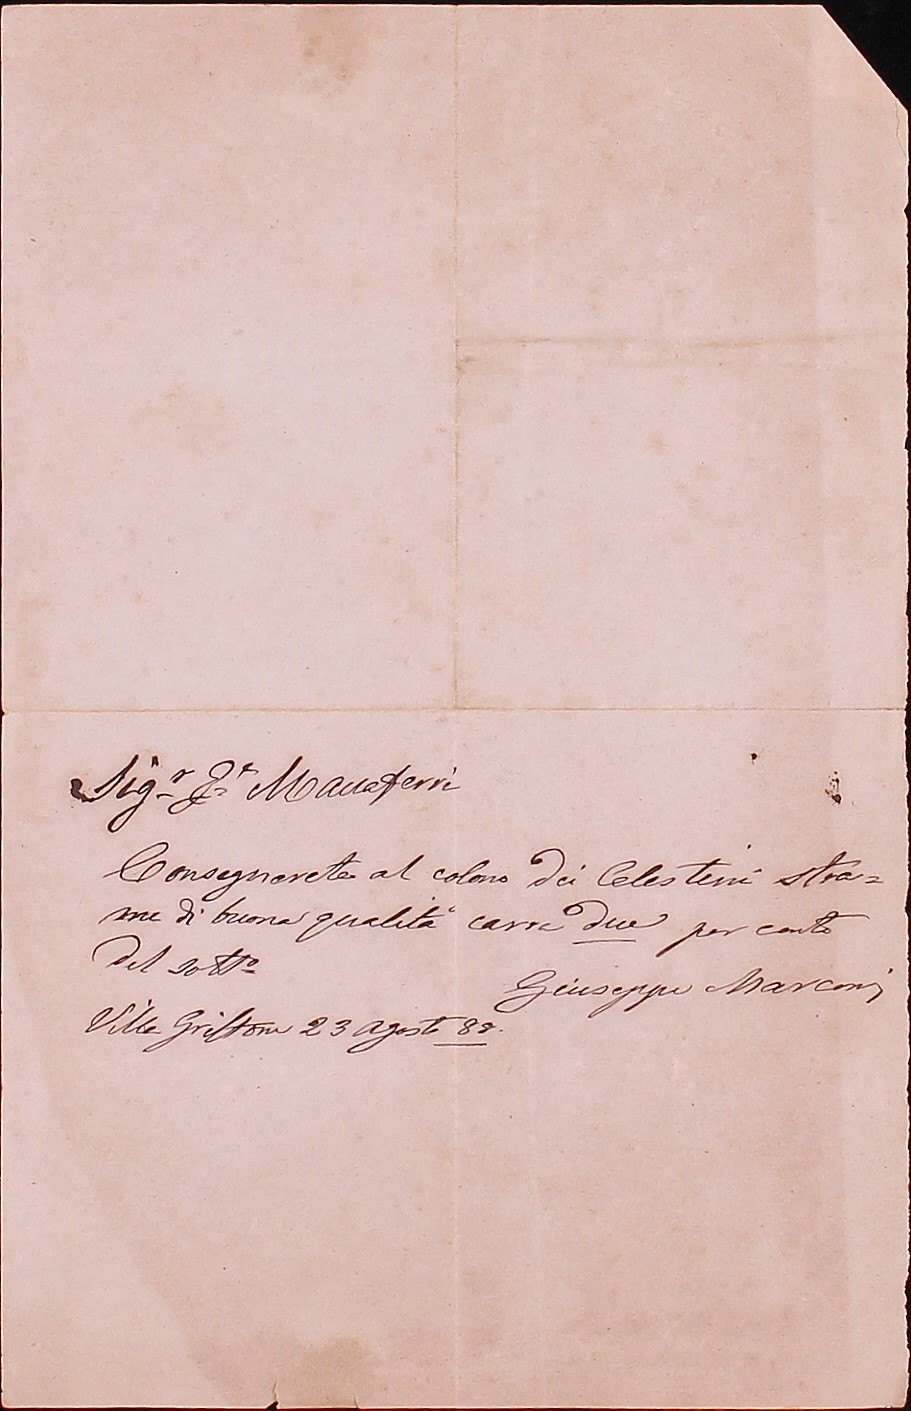 Sigr Gte Manaferri
Consegnerete al colono dei Celestini stra=
me di buona qualità carra due per conto
del sotto
Giuseppe Marconi
Villa Griffone 23 agosto 88.